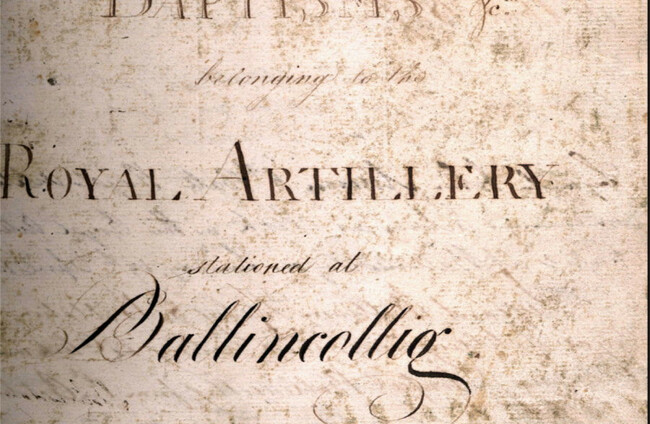 BAPTISMS &c
belonging to the
ROYAL ARTILLERY
stationed at
Ballincollig